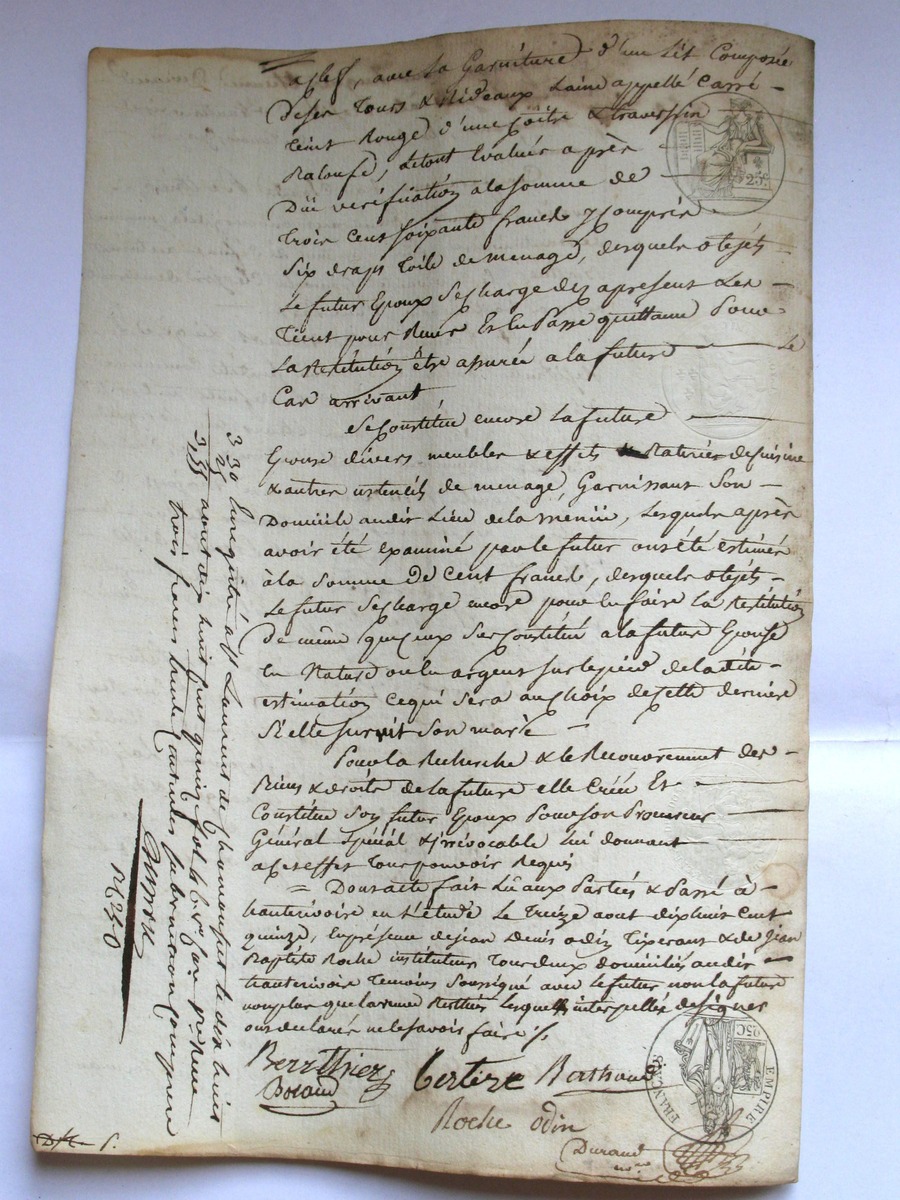 a clef, avec la Garniture d'un Lit Composé
de ses Tours & Rideaux Laine appellé Carré
teint Rouge d'une Coitre & traversin
Baloufe, le tout Evalués après
Düe vérification a la somme de
trois Cent soixante francs y compris
six draps toile de menage, desquels objéts
le futur Epoux se charge dez apresent & les
tient pour Reçus Et en Passe quittance Pour
la Restitution être assurée a la future Le
Cas arrivant
Se Constitue encore la future
Epouse divers meubles & effets & Batterie de Cuisine
& autres ustencils de menage, Garnissant Son
Domicile audit Lieu de la, Lesquels après
avoir été examiné par le futur ont été estimés
à la somme De Cent francs, desquels objéts
le futur se charge encore pour en faire la Restitution
de même que Ceux Ses Constitué a la future Epouse
en Nature ou en argent sur le pied de la dite
estimation ce qui Sera au choix de cette derniere
Si elle survit Son mari
Pour la Recherche & le Recouvrement des
Biens & droits de la future elle Créé Et
Constitue Son futur Epoux Pour son Procureur
Général Spécial & jrrévocable lui donnant
a Cet effet Tour pouvoir Requis
= Dont acte fait Lû aux Parties & Passé à
hauterivoire en L'étude Le Treize aout dix huit Cent
quinze, En présence de jean Denis odin Tixerant & de Jean
Baptiste Roche instituteur Tour deux domiciliés audit
hauterivoire Temoins Soussigné avec Le futur non la future
non plus que la venue Berthier Lesquels interpellés de signer
ont declarés ne le savoir faire ./.
Berrthier Bertize Berthaud
Boiaud
Roche odin
Durand
nore
3 30 Enregistré a St Laurent de Chamousset le dix huit
25 aout dix huit cent quinze fol 46
3,55 trois francs trente Centimes Subvention Comprise
25c
EMPIRE
FRANÇAIS
25C